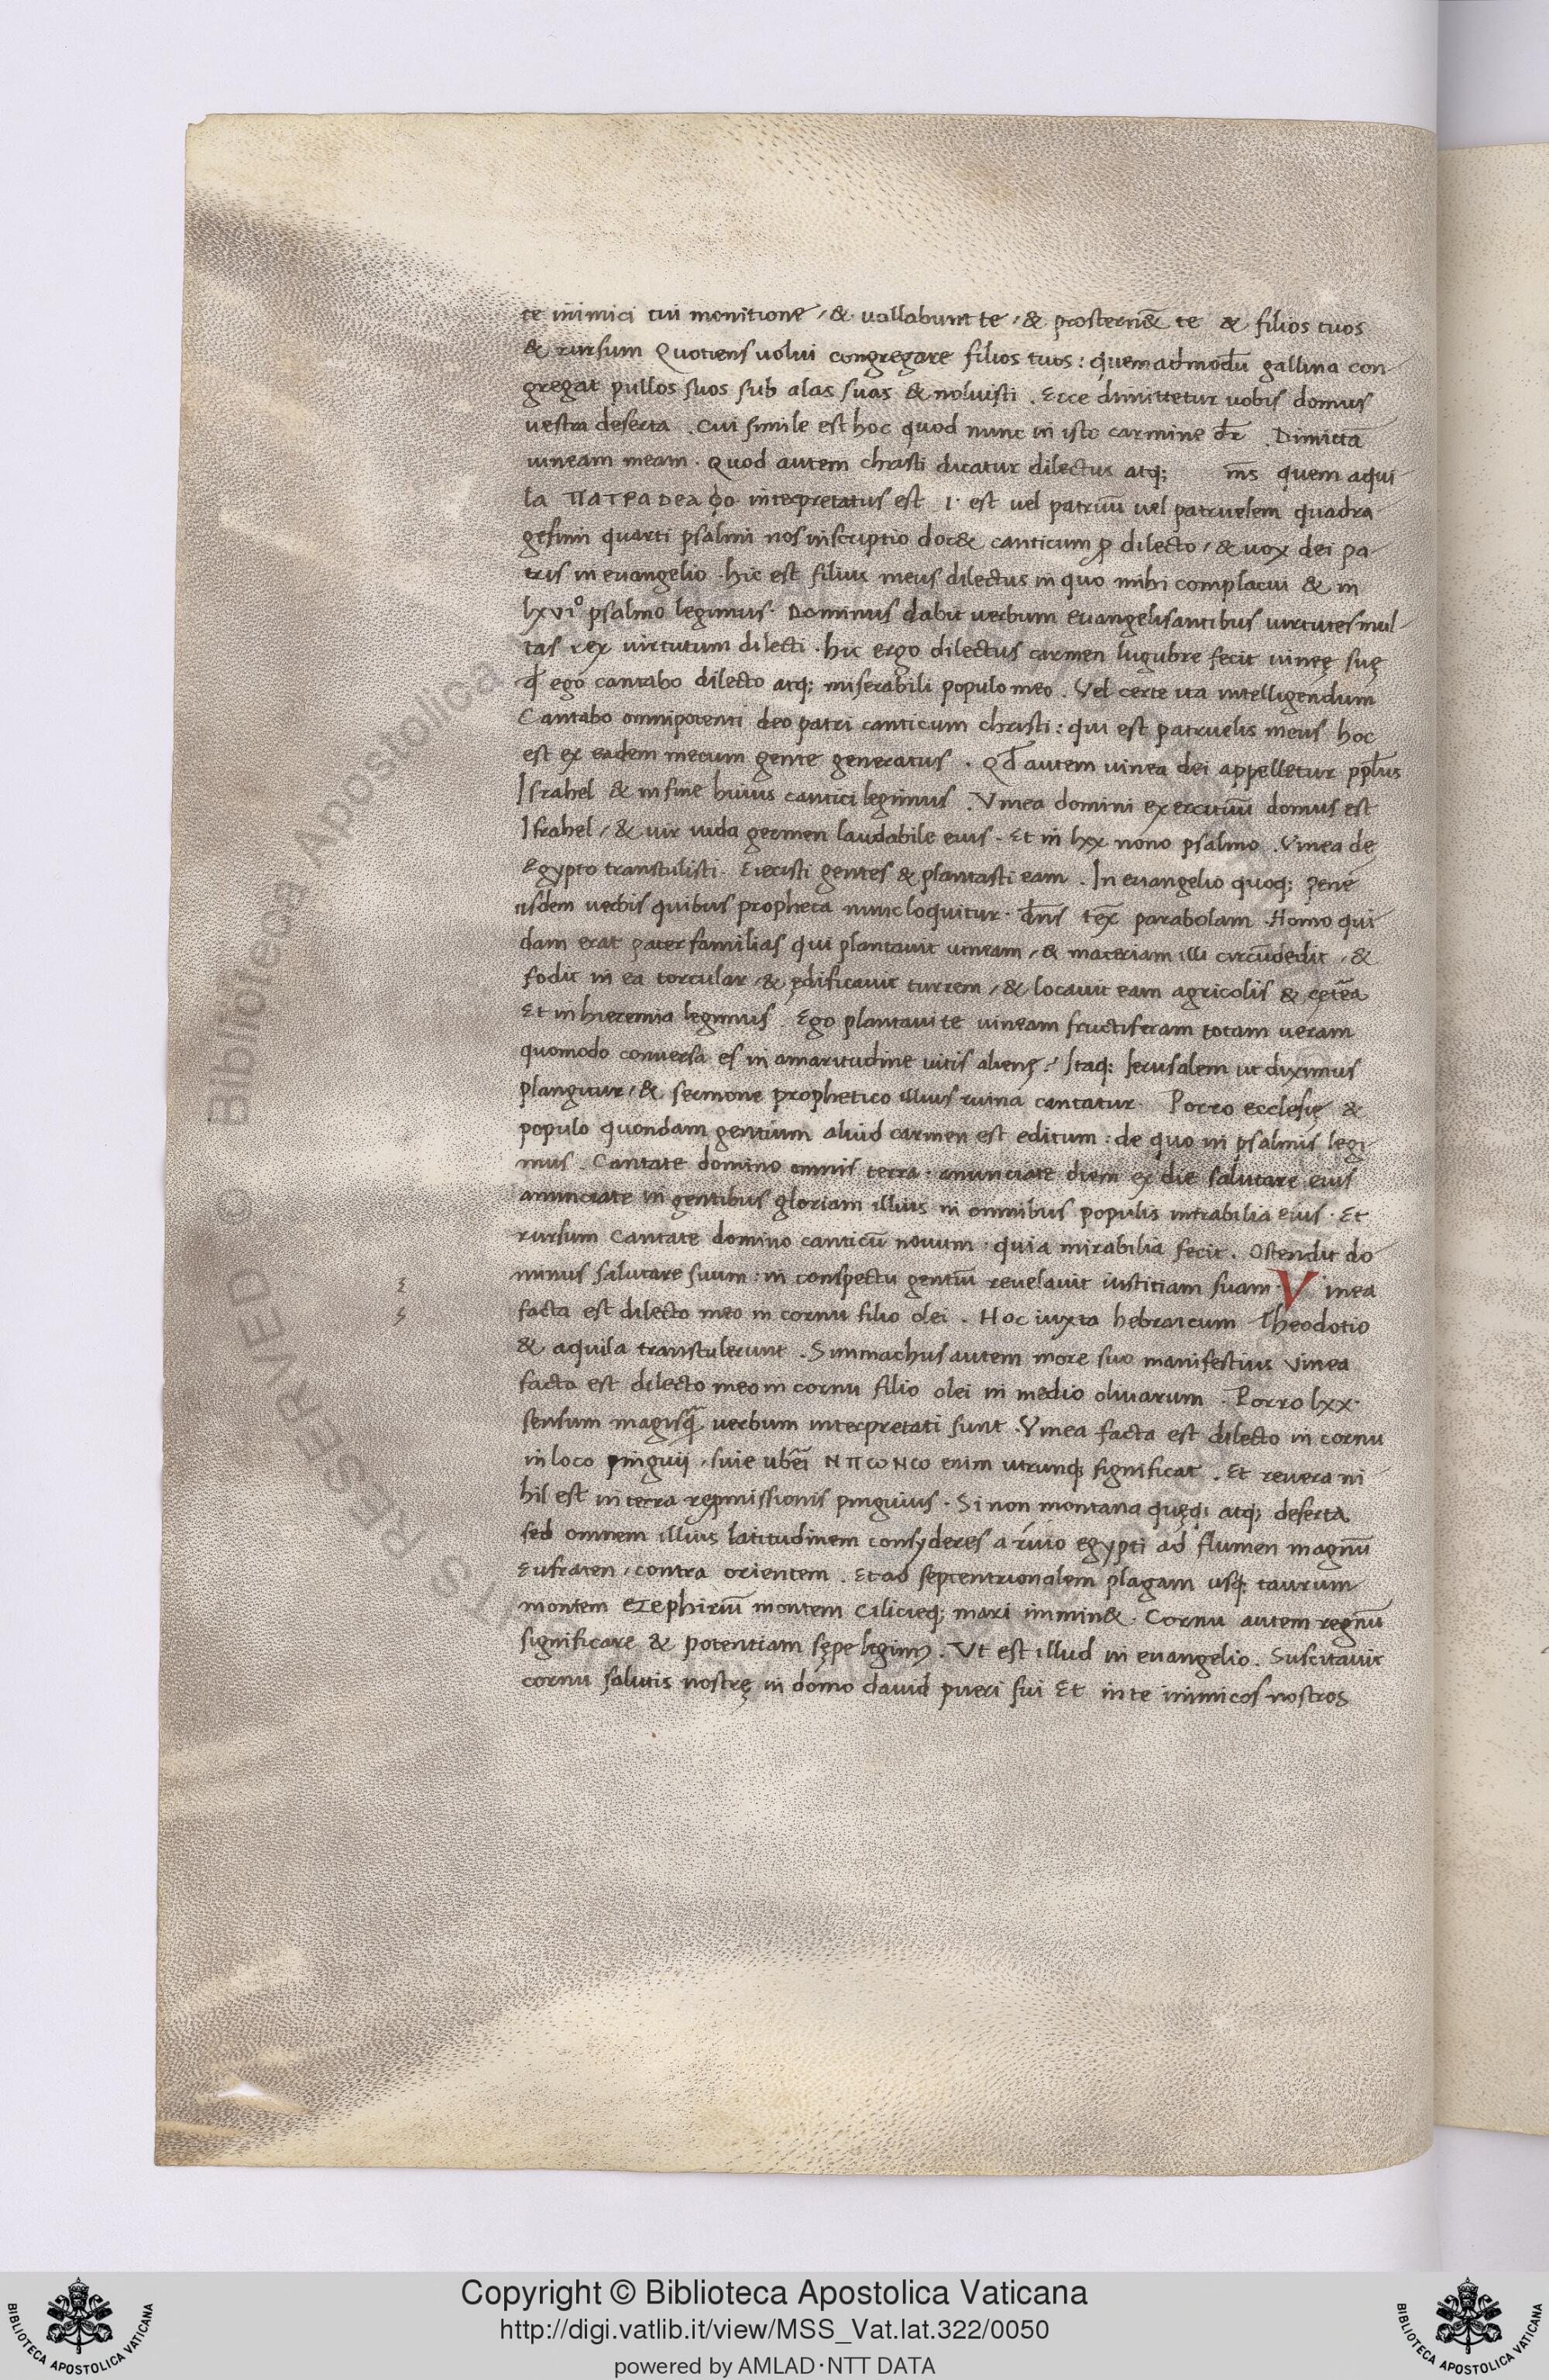 te inimici tui monitione / & uallabunt te / & prosternẽ& te & filios tuos
& rursum Quotiens uolui congregare filios tuos : quemadmodũ gallina con
gregat pullos suos sub alas suas & noluisti . Ecce dimittetur uobis domus
uestra deserta . Cui simile est hoc quod nunc in isto carmine dr̄ . Dimittã
uineam meam . Quod autem christi dicatur dilectus atq; m̄s quem aqui
la ΠΑΤΡΑDΕΑϕΟ interpretatus est .I. est uel patruũ uel patruelem quadra
gesimi quarti psalmi nos inscriptio doc& canticum ꝓ dilecto / & uox dei pa
tris in euangelio . hic est filius meus dilectus in quo mihi complacui & in
lxvi° psalmo legimus . Dominus dabit uerbum euangelisantibus uirtutes mul
tas rex uirtutum dilecti . hic ergo dilectus carmen lugubre fecit uineę suę
qđ ego cantabo dilecto atq; miserabili populo meo . Vel certe ita intelligendum
Cantabo omnipotenti deo patri canticum christi : qui est patruelis meus hoc
est ex eadem mecum gente generatus . Qđ autem uinea dei appelletur ppl̄us
Israhel & in fine huius cantici legimus . Vinea domini exercituũ domus est
Israhel / & uir iuda germen laudabile eius . Et in lxx nono psalmo . Vinea de
Egypto transtulisti . Eiecisti gentes & plantasti eam . In euangelio quoq; pene
iisdem uerbis quibus propheta nunc loquitur . dn̄s tex̄ parabolam . Homo qui
dam erat pater familias qui plantauit uineam / & maceriam illi circũdedit / &
fodit in ea torcular / & ędificauit turrem / & locauit eam agricolis & cęteã
Et in hieremia legimus . Ego plantaui te uineam fructiferam totam ueram
quomodo conuersa es in amaritudine uitis alienę ? Itaq; Ierusalem ut diximus
plangitur / & sermone prophetico illius ruina cantatur . Porro ecclesię &
populo quondam gentium aliud carmen est editum : de quo in psalmis legi
mus . Cantate domino omnis terra . anunciate diem ex die salutare eius
anunciate in gentibus gloriam illius in omnibus populis mirabilia eius . Et
rursum Cantate domino canticũ nouum . quia mirabilia fecit . Ostendit do
minus salutare suum : in conspectu gentiũ reuelauit iustitiam suam . Vinea
facta est dilecto meo in cornu filio olei . Hoc iuxta hebraicum Theodotio
& aquila transtulerunt . Simmachus autem more suo manifestius Vinea
facta est dilecto meo in cornu filio olei in medio oliuarum . Porro lxx
sensum magisq̃ uerbum interpretati sunt . Vinea facta est dilecto in cornu
in loco pinguij . siue ubei ΝΠωΝω enim utrunq; significat . Et reuera ni
hil est in terra repmissionis pinguius . Si non montana quęq; atq; deserta
sed omnem illius latitudinem consyderes a riuio egypti ad flumen magnũ
Eufraten / contra orientem . Et ad septentrionalem plagam usq; taurum
montem & zephiriũ montem Cilicieq; mari immin& . Cornu autem regnũ
significare & potentiam sępe legim9 . Vt est illud in euangelio . Suscitauit
cornu salutis nostrę in domo dauid pueri sui Et in te inimicos nostros
Copyright © Biblioteca Apostolica Vaticana
http://digi.vatlib.it/view/MSS_Vat.lat.322/0050
powered by AMLAD·NTT DATA
BIBLIOTECA APOSTOLICA VATICANA
BIBLIOTECA APOSTOLICA VATICANA